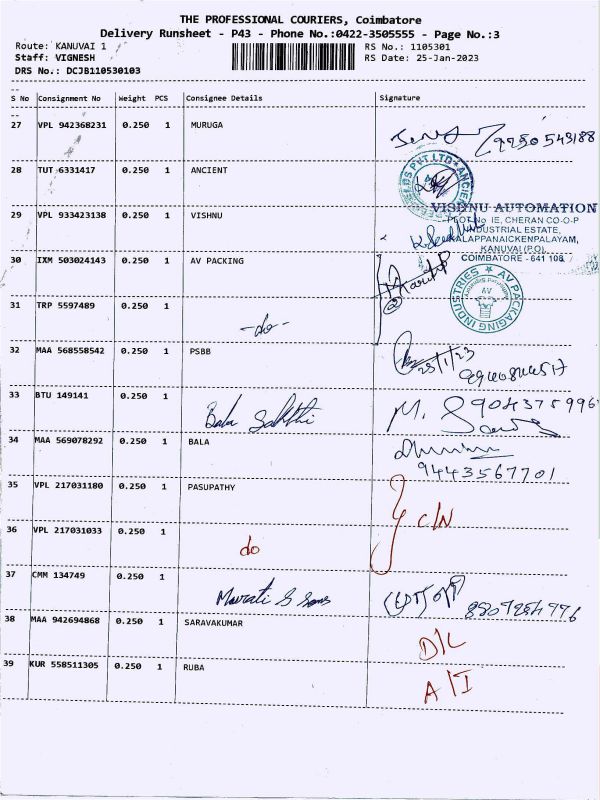 THE PROFESSIONAL COURIERS, Coimbatore
Delivery Runsheet - P43 - Phone No.:0422-3505555 - Page No.:3
Route: KANUVAI 1 RS No.: 1105301
Staff: VIGNESH RS Date: 25-Jan-2023
DRS No.: DCJB110530103
S No Consignment No Weight PCS Consignee Details Signature
27 VPL 942368231 0.250 1 MURUGA
28 TUT 6331417 0.250 1 ANCIENT
29 VPL 933423138 0.250 1 VISHNU
VISHNU AUTOMATION
PLOT No IE, CHERAN CO-O-P
INDUSTRIAL ESTATE,
KALAPPANAICKENPALAYAM,
KANUVAI (P.O)
COIMBATORE - 641 108
30 IXM 503024143 0.250 1 AV PACKING
AV PACKAGING INDUSTRIES
AV
31 TRP 5597489 0.250 1 -do-
32 MAA 568558542 0.250 1 PSBB
33 BTU 149141 0.250 1 Bala Sakthi M.
34 MAA 569078292 0.250 1 BALA
9443567701
35 VPL 217031180 0.250 1 PASUPATHY
C/N
36 VPL 217031033 0.250 1 do
37 CMM 134749 0.250 1 Maruti & Sons
38 MAA 942694868 0.250 1 SARAVAKUMAR D/L
39 KUR 558511305 0.250 1 RUBA A/I